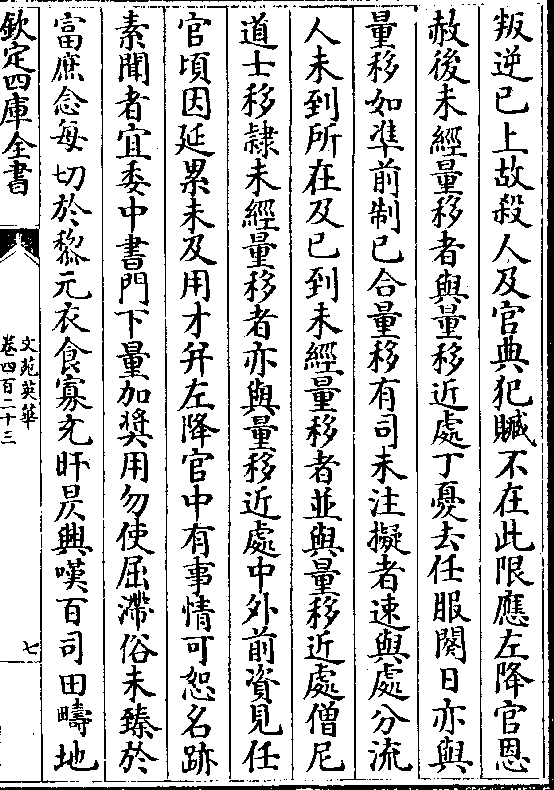 叛逆已上故殺人及官典犯贓不在此限應左降官恩
赦後未經量移者與量移近處丁憂去任服闋日亦與
量移如凖前制已合量移有司未注擬者速與處分流
人未到所在及已到未經量移者並與量移近處僧尼
道士移隸未經量移者亦與量移近處中外前資見任
官頃因延累未及用才并左降官中有事情可恕名跡
素聞者宜委中書門下量加奬用勿使屈滯俗未臻於
富庶念每切於黎元衣食寡充旰昃興嘆百司田疇地
欽定四庫全書
文苑英華
卷四百二十三
七